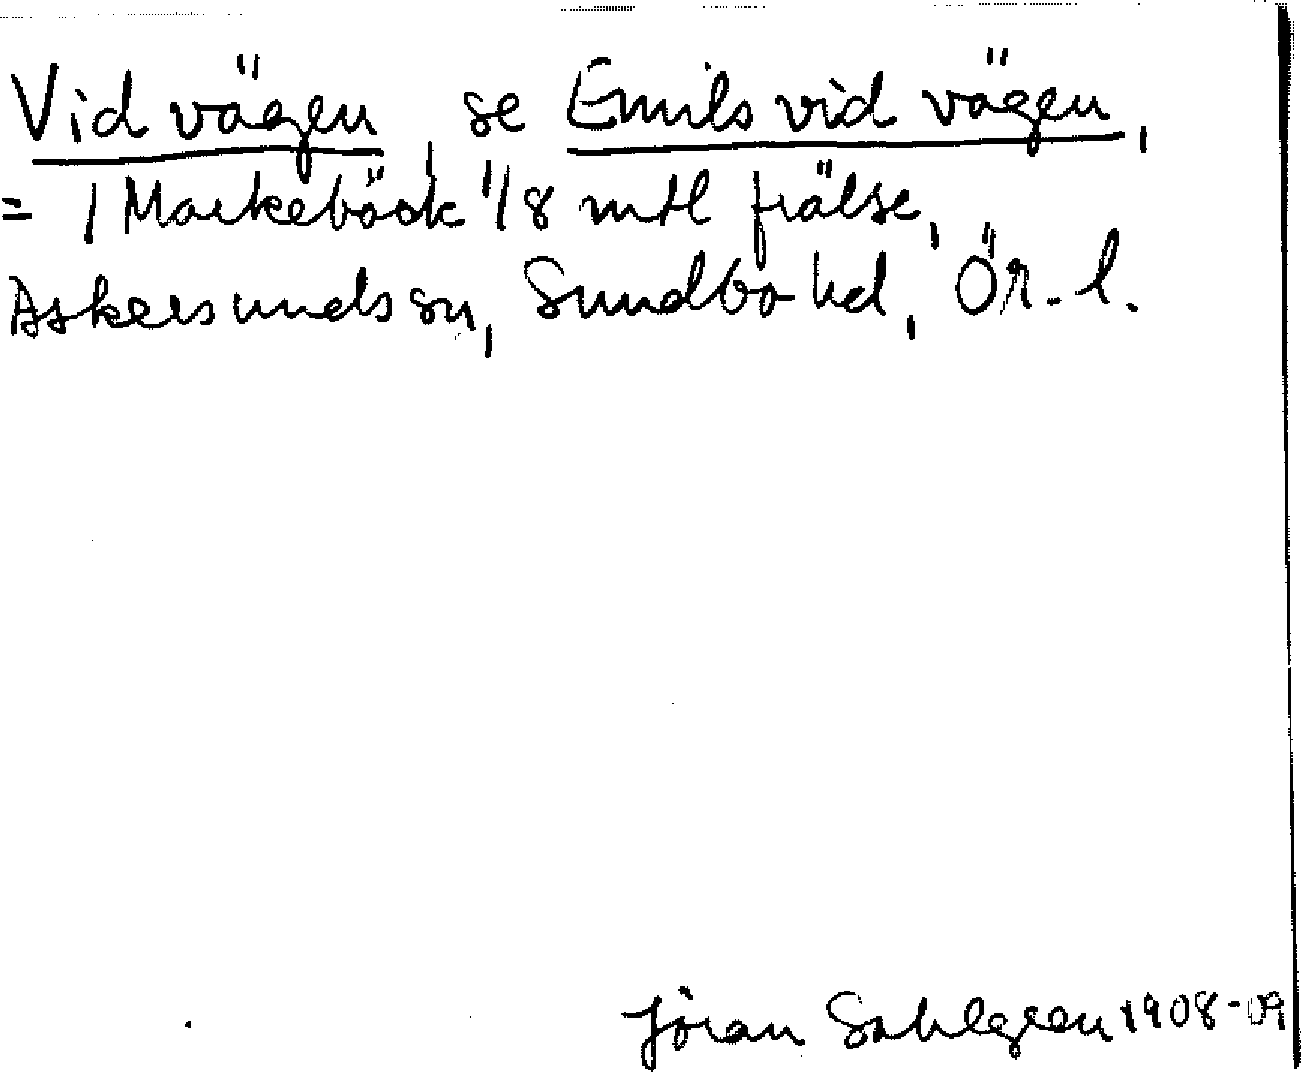 Vid vägen, se Emils vid vägen,
= 1 Markebäck 1/8 mtl frälse,
Askersunds sn, Sundbo hd, Ör. l.
Jöran Sahlgren 1908-09